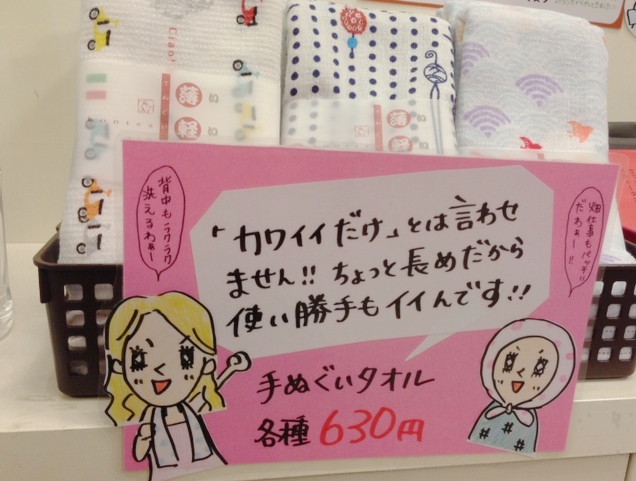 Ciao!
薄
軽
薄
軽
背中もラクラク
洗えるわぁー
畑仕事もバッチリ
だわぁー!!
「カワイイだけ」とは言わせ
ません!!ちょっと長めだから
使い勝手もイイんです!!
手ぬぐいタオル
各種630円